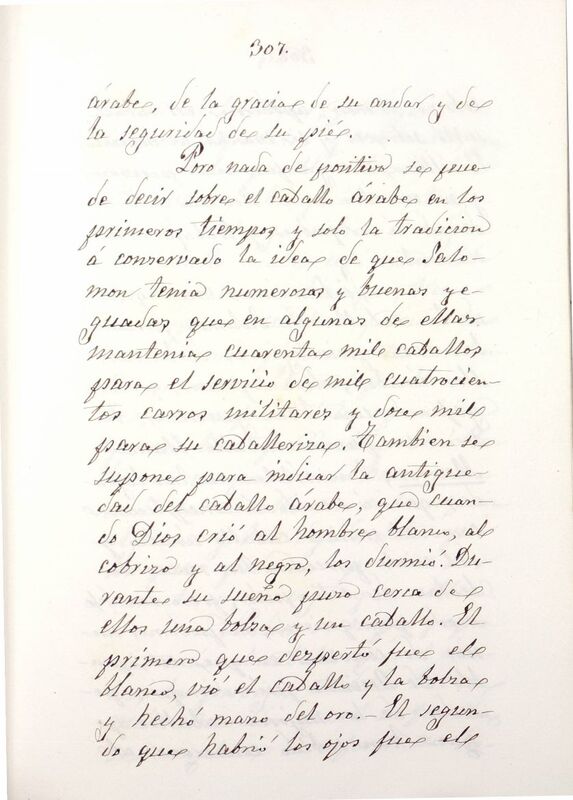 307.
árabe, de la gracia de su andar y de
la seguridad de su pié.
Poro nada de positivo se pue-
de decir sobre el caballo árabe en los
primeros tiempos y solo la tradicion
á conservado la idea de que Salo-
mon tenia numerosas y buenas ye-
guadas que en algunas de ellas
mantenia cuarenta mil caballos
para el servicio de mil cuatrocien-
tos carros militares y doce mil
para su caballeriza. Tambien se
supone para indicar la antigue-
dad del caballo árabe, que cuan-
do Dios crió al hombre blanco, al
cobrizo y al negro, los durmió. Du-
rante su sueño puso cerca de
ellos una bolsa y un caballo. El
primero que despertó fue el
blanco, vió el caballo y la bolsa
y hechó mano del oro. - El segun-
do que habrió los ojos fue el